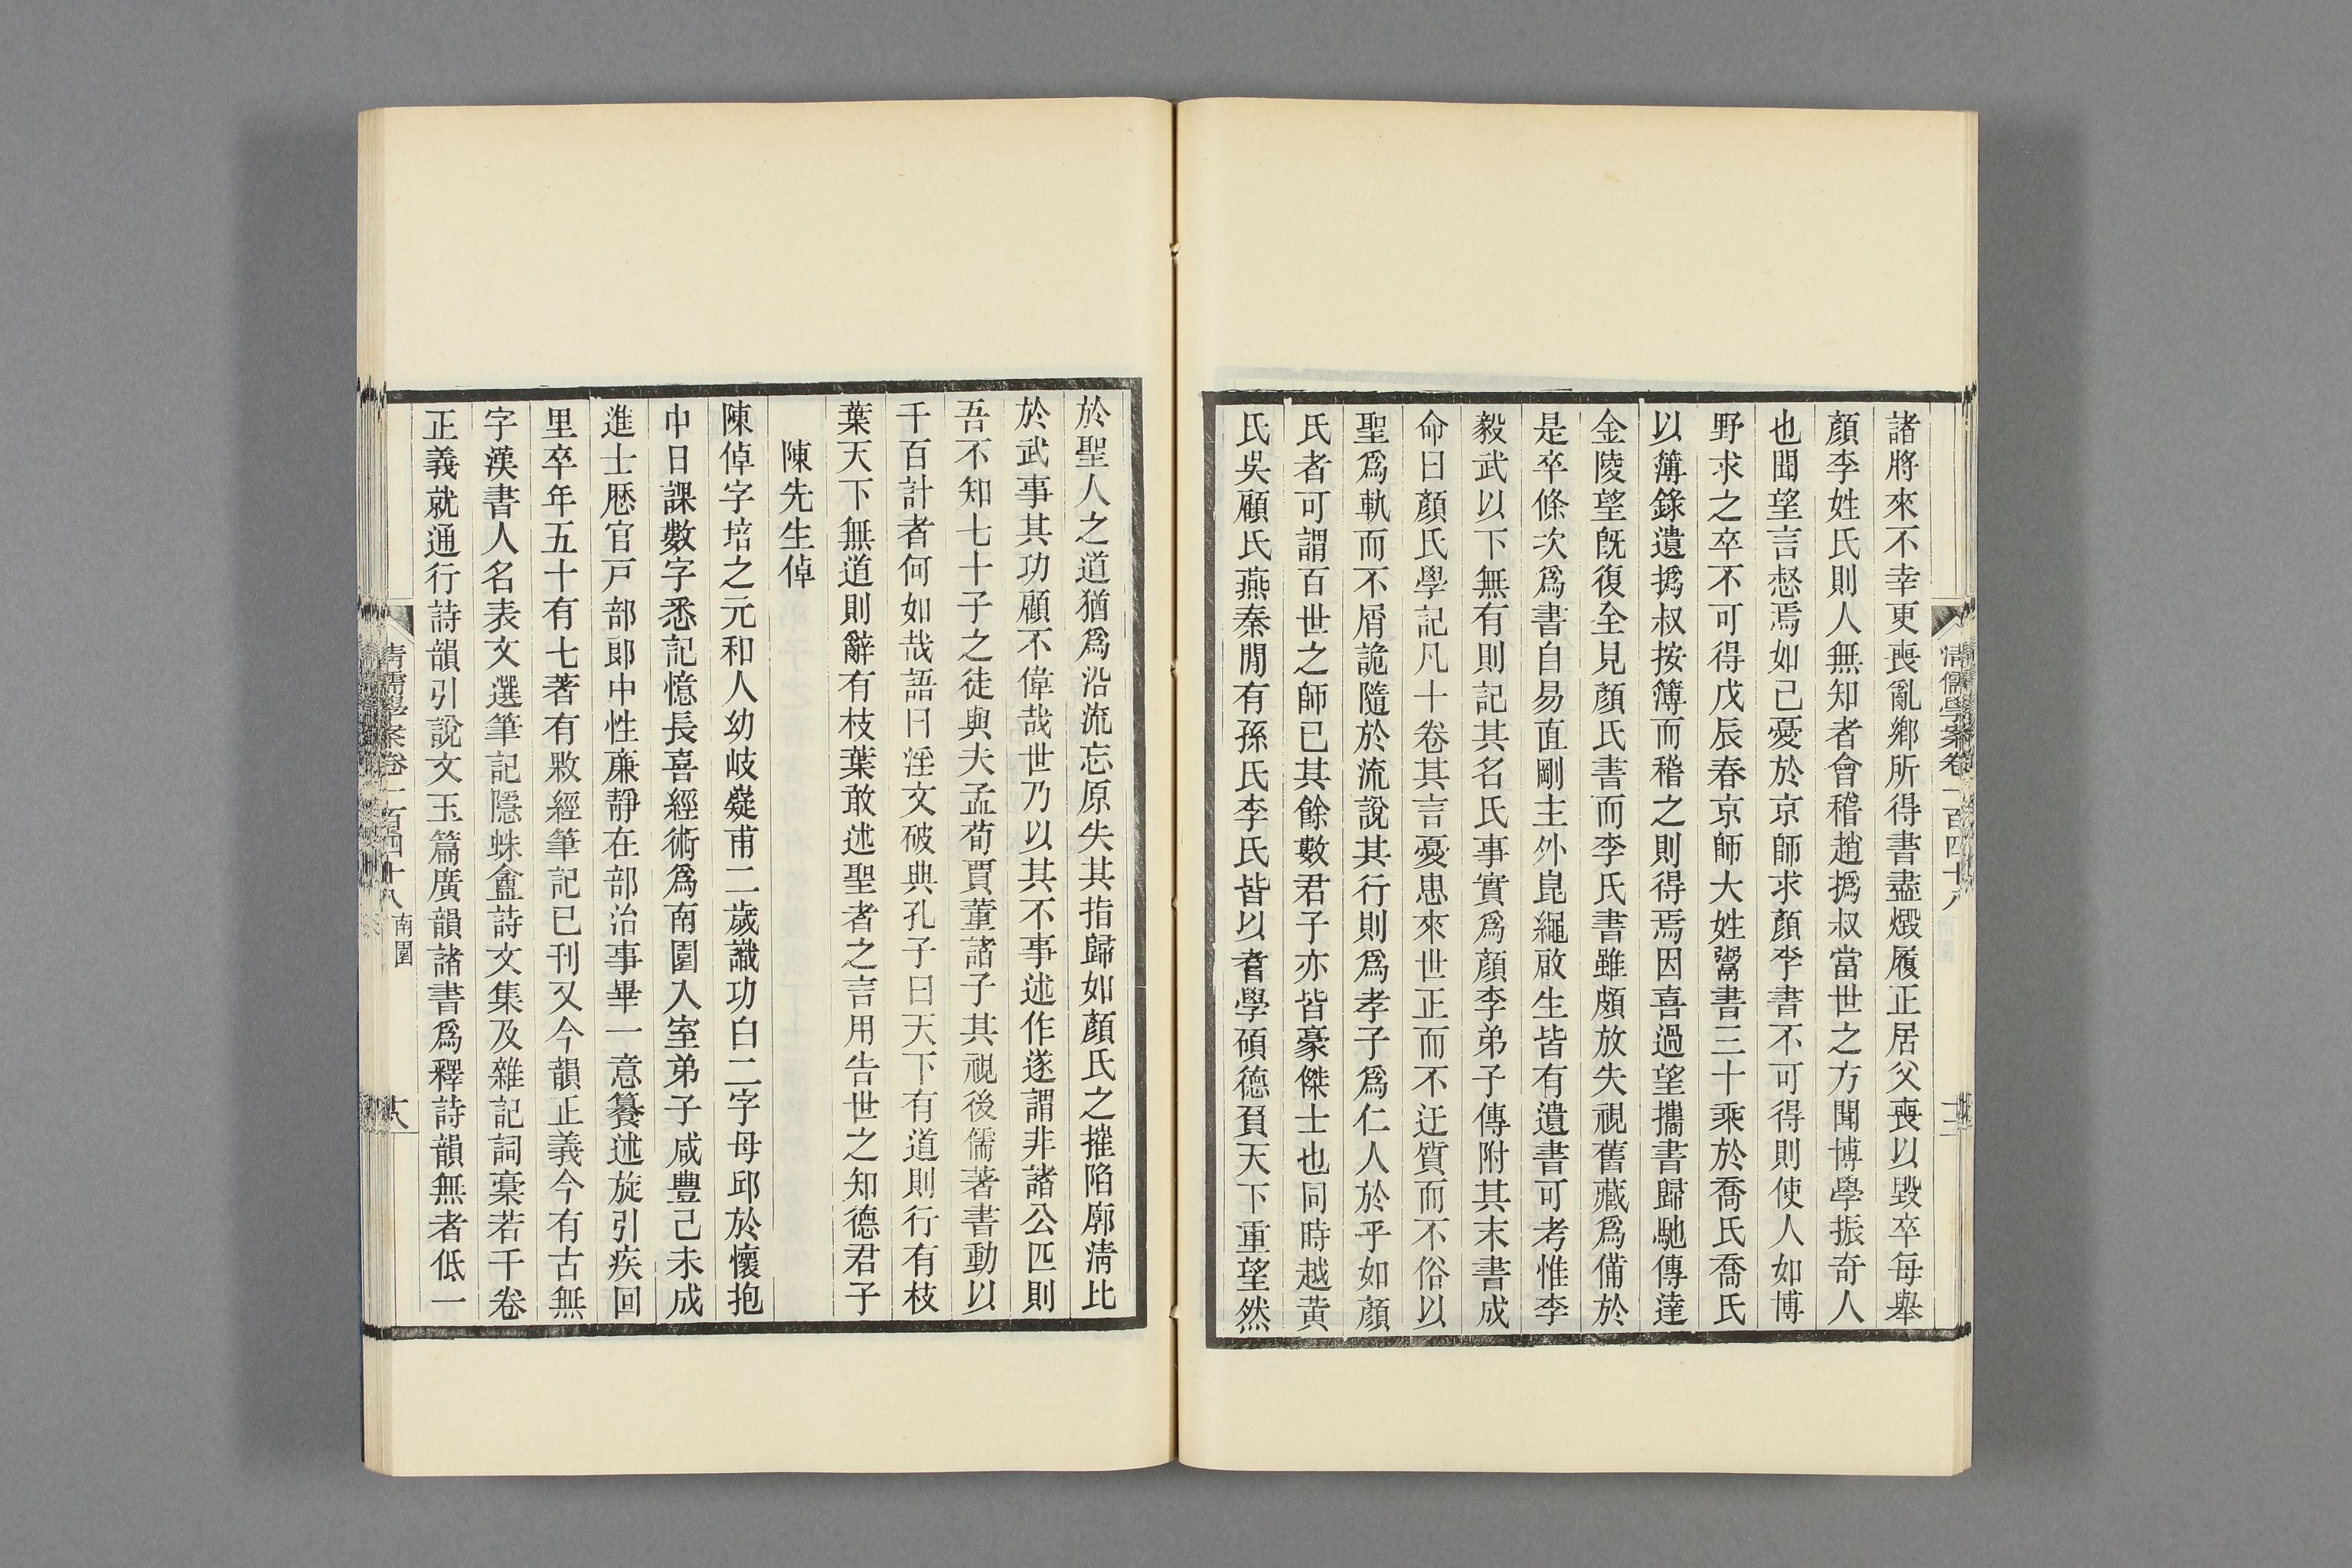 諸將來不幸更喪亂鄉所得書盡燬履正居父喪以毀卒每舉
顏李姓氏則人無知者會稽趙撝叔當世之方聞博學振奇人
也聞望言惄焉如己憂於京師求顏李書不可得則使人如博
野求之卒不可得戊辰春京師大姓鬻書三十乘於喬氏喬氏
以簿錄遺撝叔按簿而稽之則得焉因喜過望攜書歸馳傳達
金陵望旣復全見顏氏書而李氏書雖頗放失視舊藏爲備於
是卒條次爲書自易直剛主外崑繩啟生皆有遺書可考惟李
毅武以下無有則記其名氏事實爲顏李弟子傳附其末書成
命曰顏氏學記凡十卷其言憂患來世正而不迂質而不俗以
聖爲軌而不屑詭隨於流說其行則爲孝子爲仁人於乎如顏
氏者可謂百世之師已其餘數君子亦皆豪傑士也同時越黄
氏吳顧氏燕秦閒有孫氏李氏皆以耆學碩德負天下重望然
於聖人之道猶爲沿流忘原失其指歸如顏氏之摧陷廓淸比
於武事其功顧不偉哉世乃以其不事述作遂謂非諸公匹則
吾不知七十子之徒與夫孟荀賈董諸子其視後儒著書動以
千百計者何如哉語曰淫文破典孔子曰天下有道則行有枝
葉天下無道則辭有枝葉敢述聖者之言用告世之知德君子
陳先生倬
陳倬字培之元和人幼岐嶷甫二歲識功白二字母邱於懷抱
中日課數字悉記憶長喜經術爲南園入室弟子咸豐己未成
進士歷官戸部郎中性廉靜在部治事畢一意纂述旋引疾回
里卒年五十有七著有敤經筆記已刊又今韻正義今有古無
字漢書人名表文選筆記隱蛛盦詩文集及雜記詞稾若干卷
正義就通行詩韻引說文玉篇廣韻諸書爲釋詩韻無者低一
清儒學案卷一百四十八 南園